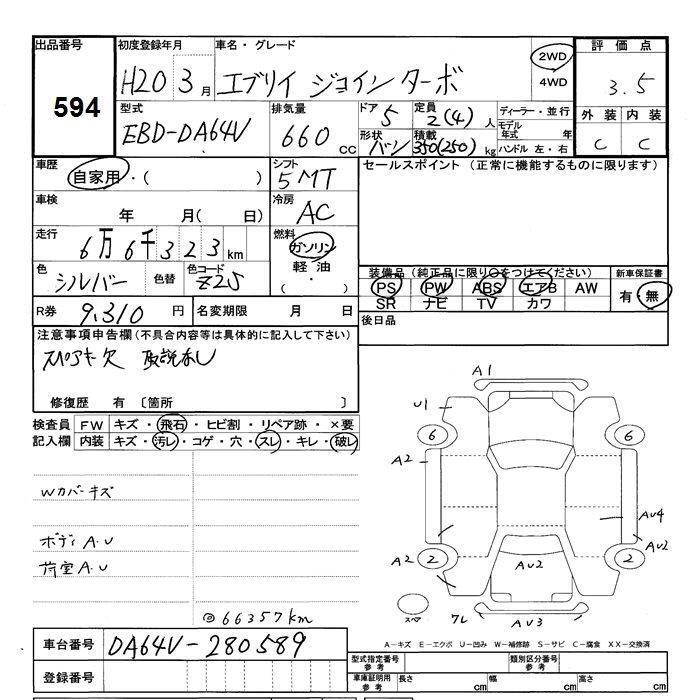 出品番号 初度登録年月 車名・グレード 評価点
594 H20 3月 エブリイ ジョインターボ 2WD 4WD 3.5
型式 排気量 ドア 定員 ディーラー・並行 外装 内装
EBD-DA64V 660cc 5 2(4)人 モデル年式 年 C C
形状 バン 積載 350(250)kg ハンドル 左・右
車歴 自家用・( ) シフト 5MT セールスポイント (正常に機能するものに限ります)
車検 年 月( 日) 冷房 AC
走行 6万6千323km 燃料 ガソリン 軽油 ( ・ )
色 シルバー 色替 色コード Z2S 装備品(純正品に限り○をつけてください) 新車保証書
PS PW ABS エアB AW 有・無
SR ナビ TV カワ
R券 9,310円 名変期限 月 日 後日品
注意事項申告欄(不具合内容等は具体的に記入して下さい)
スペアキー欠 取説なし
修復歴 有 〔箇所 〕
検査員記入欄 FW キズ・飛石・ヒビ割・リペア跡・×要
内装 キズ・汚レ・コゲ・穴・スレ・キレ・破レ
A1
U1
6 6
A2
Wカバーキズ
AU4
ボディA.U AU2
A2 2 2
荷室A.U AU2
◎66357km スペア フレ AU3
A-キズ E-エクボ U-凹み W-補修跡 S-サビ C-腐食 XX-交換済
車台番号 DA64V-280589
型式指定番号 参考 類別区分番号 参考
登録番号 車庫証明用 参考 長さ cm 幅 cm 高さ cm